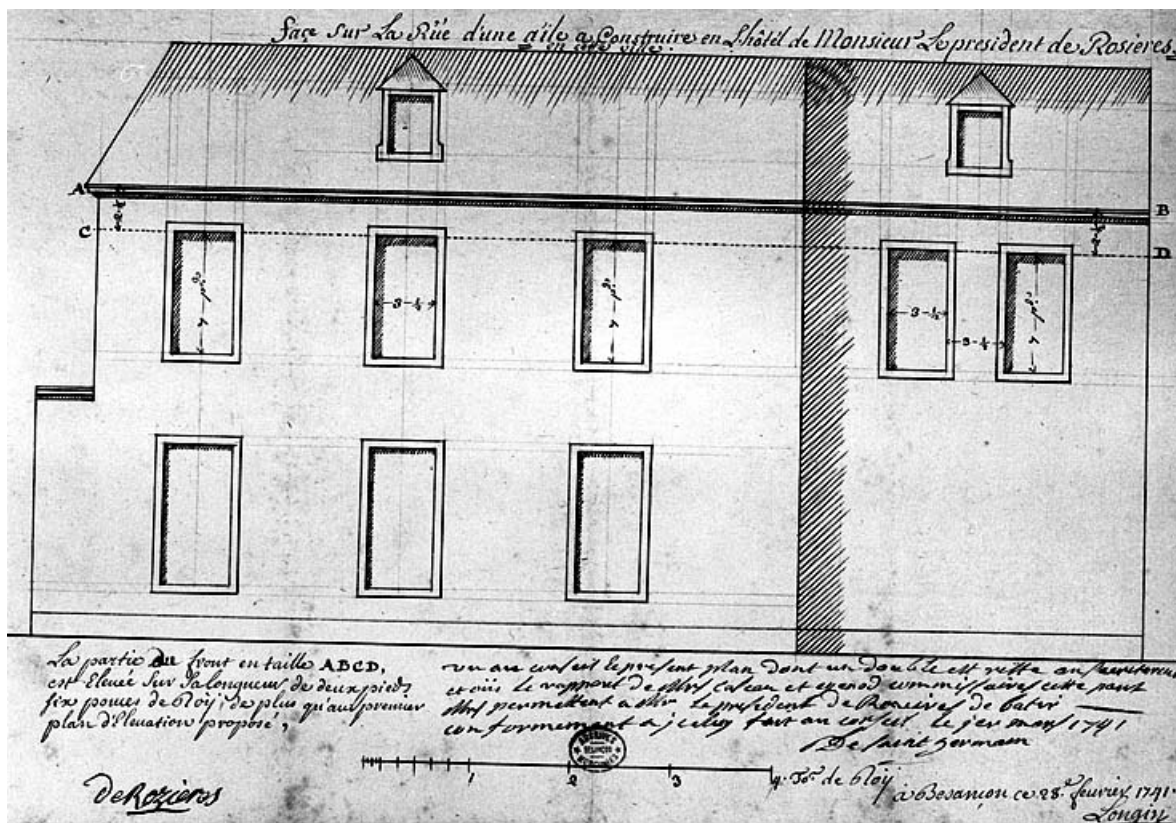 façe Sur La Rüe d'une aîle a Construire en L'hôtel de Monsieur Le president de Rosieres,
en cete ville.
A
B
C
D
2-½
2-½
7 pds
3-½
7 pds
3-½
3-½
7 pds
La partie du front en taille ABCD,
est Elevée Sur Sa longueur de deux pieds
six pouces de Roy, de plus qu'au premier
plan d'Elevation proposé,
vu au conseil le present plan dont un double est reste au secretariat
et oüis le rapport de Mrs et commissaires cette part
Mrs permettent a Mr Le president de Rosieres de batir
conformement a jceluy fait au conseil le jer mars 1741
De Saint germain
1 2 3 4 Tois de Roy
ARCHIVES
BESANÇON
MUNICIPALES
à Besançon ce 28e fevrier 1741
Longin
de Rozieres